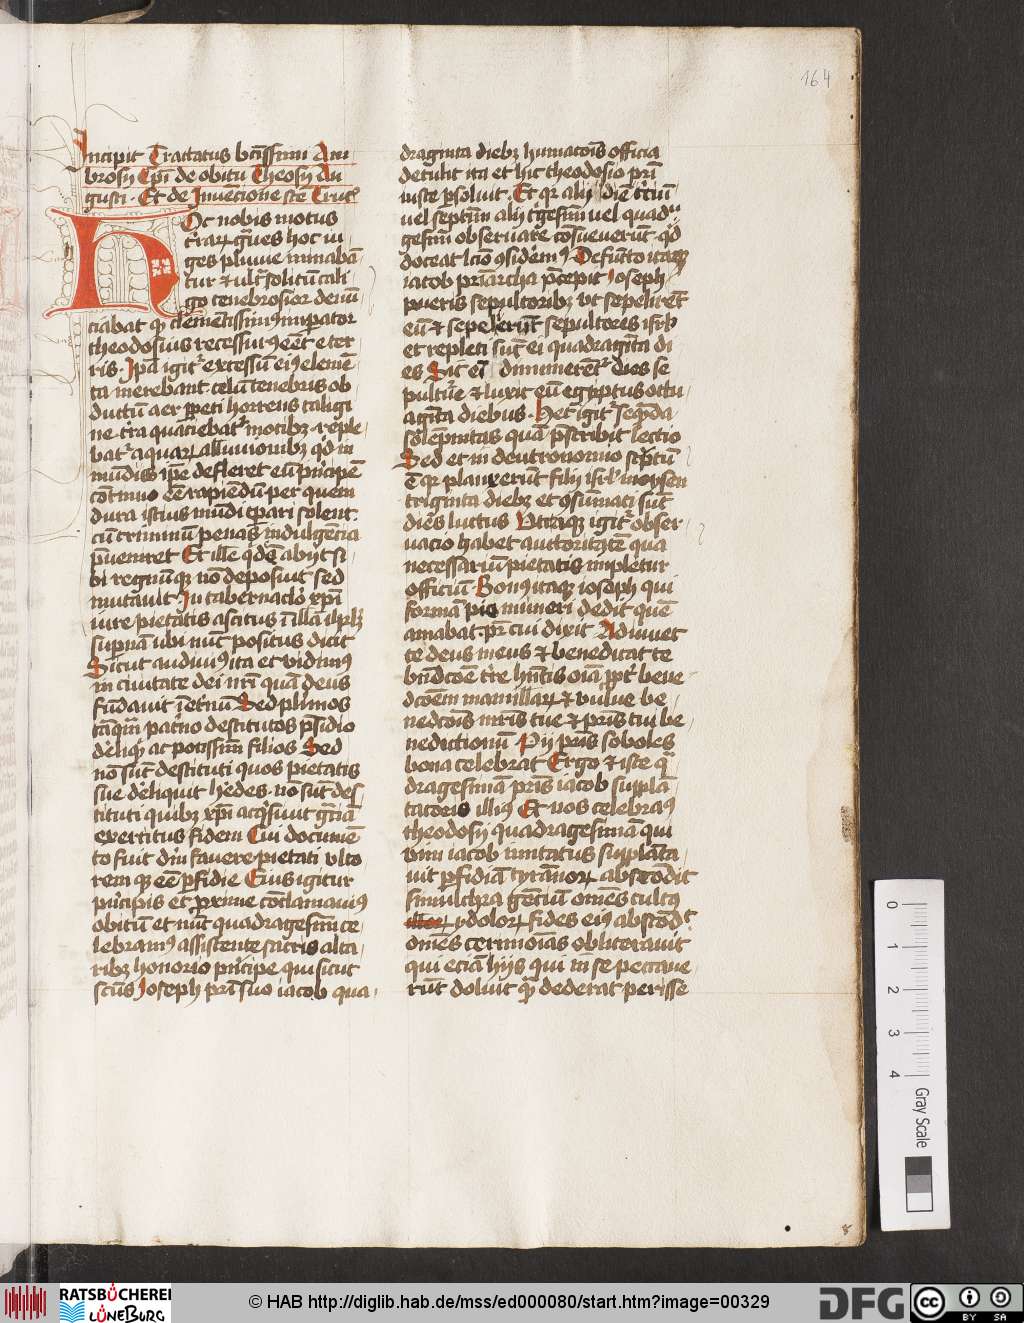 164
Incipit Tractatus btissimi Am
brosij Epi de obitu Theosij Au
gusti · Et de Inuencione ste Crucis
HOc nobis motus
trarum graues hoc iu
ges pluuie minabā
tur et ultra solitum cali
go tenebrosior denū
ciabat qͥ clementissimus imperator
theodosius recessurus eet e ter
ris · Ipa igitur excessum eius elemē
ta merebant celum tenebris ob
ductum aer perpeti horrens caligi
ne · terra quaciebatur motibus · reple
batur aquarum alluuionibus qd in
mūdus ipe defleret eum principē
cōtinuo eē rapiendum per quem
dura istius mūdi tpari solent
cū criminū penas indulgēcia
pueniret Et ille qdē abijt si
bi regnūque nō deposuit sed
mutauit · In tabernaclo xpi
iure pietatis ascitus ī illā ihrlm
supnā ubi nūc positus dicit
Sicut audiuimus ita et vidimus
in ciuitate dei nri quā deus
fūdauit ī eternū Sed plurimos
tāqm paterno destitutos psidio
deliquit ac potissim filios Sed
nō sūt destituti quos pietatis
sue deliquit hedes · nō sūt des
tituti quibus xpi acqsiuit gciā
exercitus fidem Cui documē
to fuit dm fauere pietati vlto
rem que eē pfidie Eius igitur
principis et proxime cōclamauimus
obitum et nūc quadragesim ce
lebramus assistente sacris alta
ribus honorio principe qui sicut
sctus Joseph pri suo iacob qua
draginta diebus humacois officia
detulit ita et hic theodosio pri
iuste psoluit · Et qr alij die tercium
uel septim alij trigesim uel quadra
gesim obseruare cosueuerūt · qd
doceat lcio osiderem Defuncto itaque
iacob priarcha precepit Joseph
pueris sepultoribus vt sepelirēt
eū et sepelierūt sepultores isrl
et repleti sūt ei quadragīta di
es Sic eī dinumerētur dies se
pultre et luxit eū egyptus octu
agīta diebus · Hec igitur sequēda
solempnitas quā pscribit lectio
Sed et in deutronomio scriptū
ē qͥ planxerūt filij isrl moysen
triginta diebus et osūmati sūt
dies luctus Vtraque igitur obser
uacio habet auctoritatē qua
necessariū pietatis impletur
officiū · Bonus itaque ioseph qui
formā pie muneri dedit quē
amabat pr cui dixit Adiuuet
te deus meus et benedicat te
bndcoē tre hntis oia ppter bene
dcoēm mamillarum et vulue be
nedcois mris tue et pris tui be
nedictionū Pij pris soboles
bona celebrat Ergo et iste qua
dragesimā pris iacob supplā
tatoris illius Et nos celebramus
theodosij quadragesimā qui
vim iacob imitatus supplāta
uit pfidiā tyrānorum abscōdit
simulchra gentiū omēs cultus
ydolorum fides eius abscōdit
omēs cerimonias obliterauit
qui eciā hijs qui in se peccaue
rūt doluit quam dederat perisse
0
1
2
3
4
Gray Scale
RATSBÜCHEREI
LÜNEBURG
© HAB http://diglib.hab.de/mss/ed000080/start.htm?image=00329
DFG
cc
BY SA